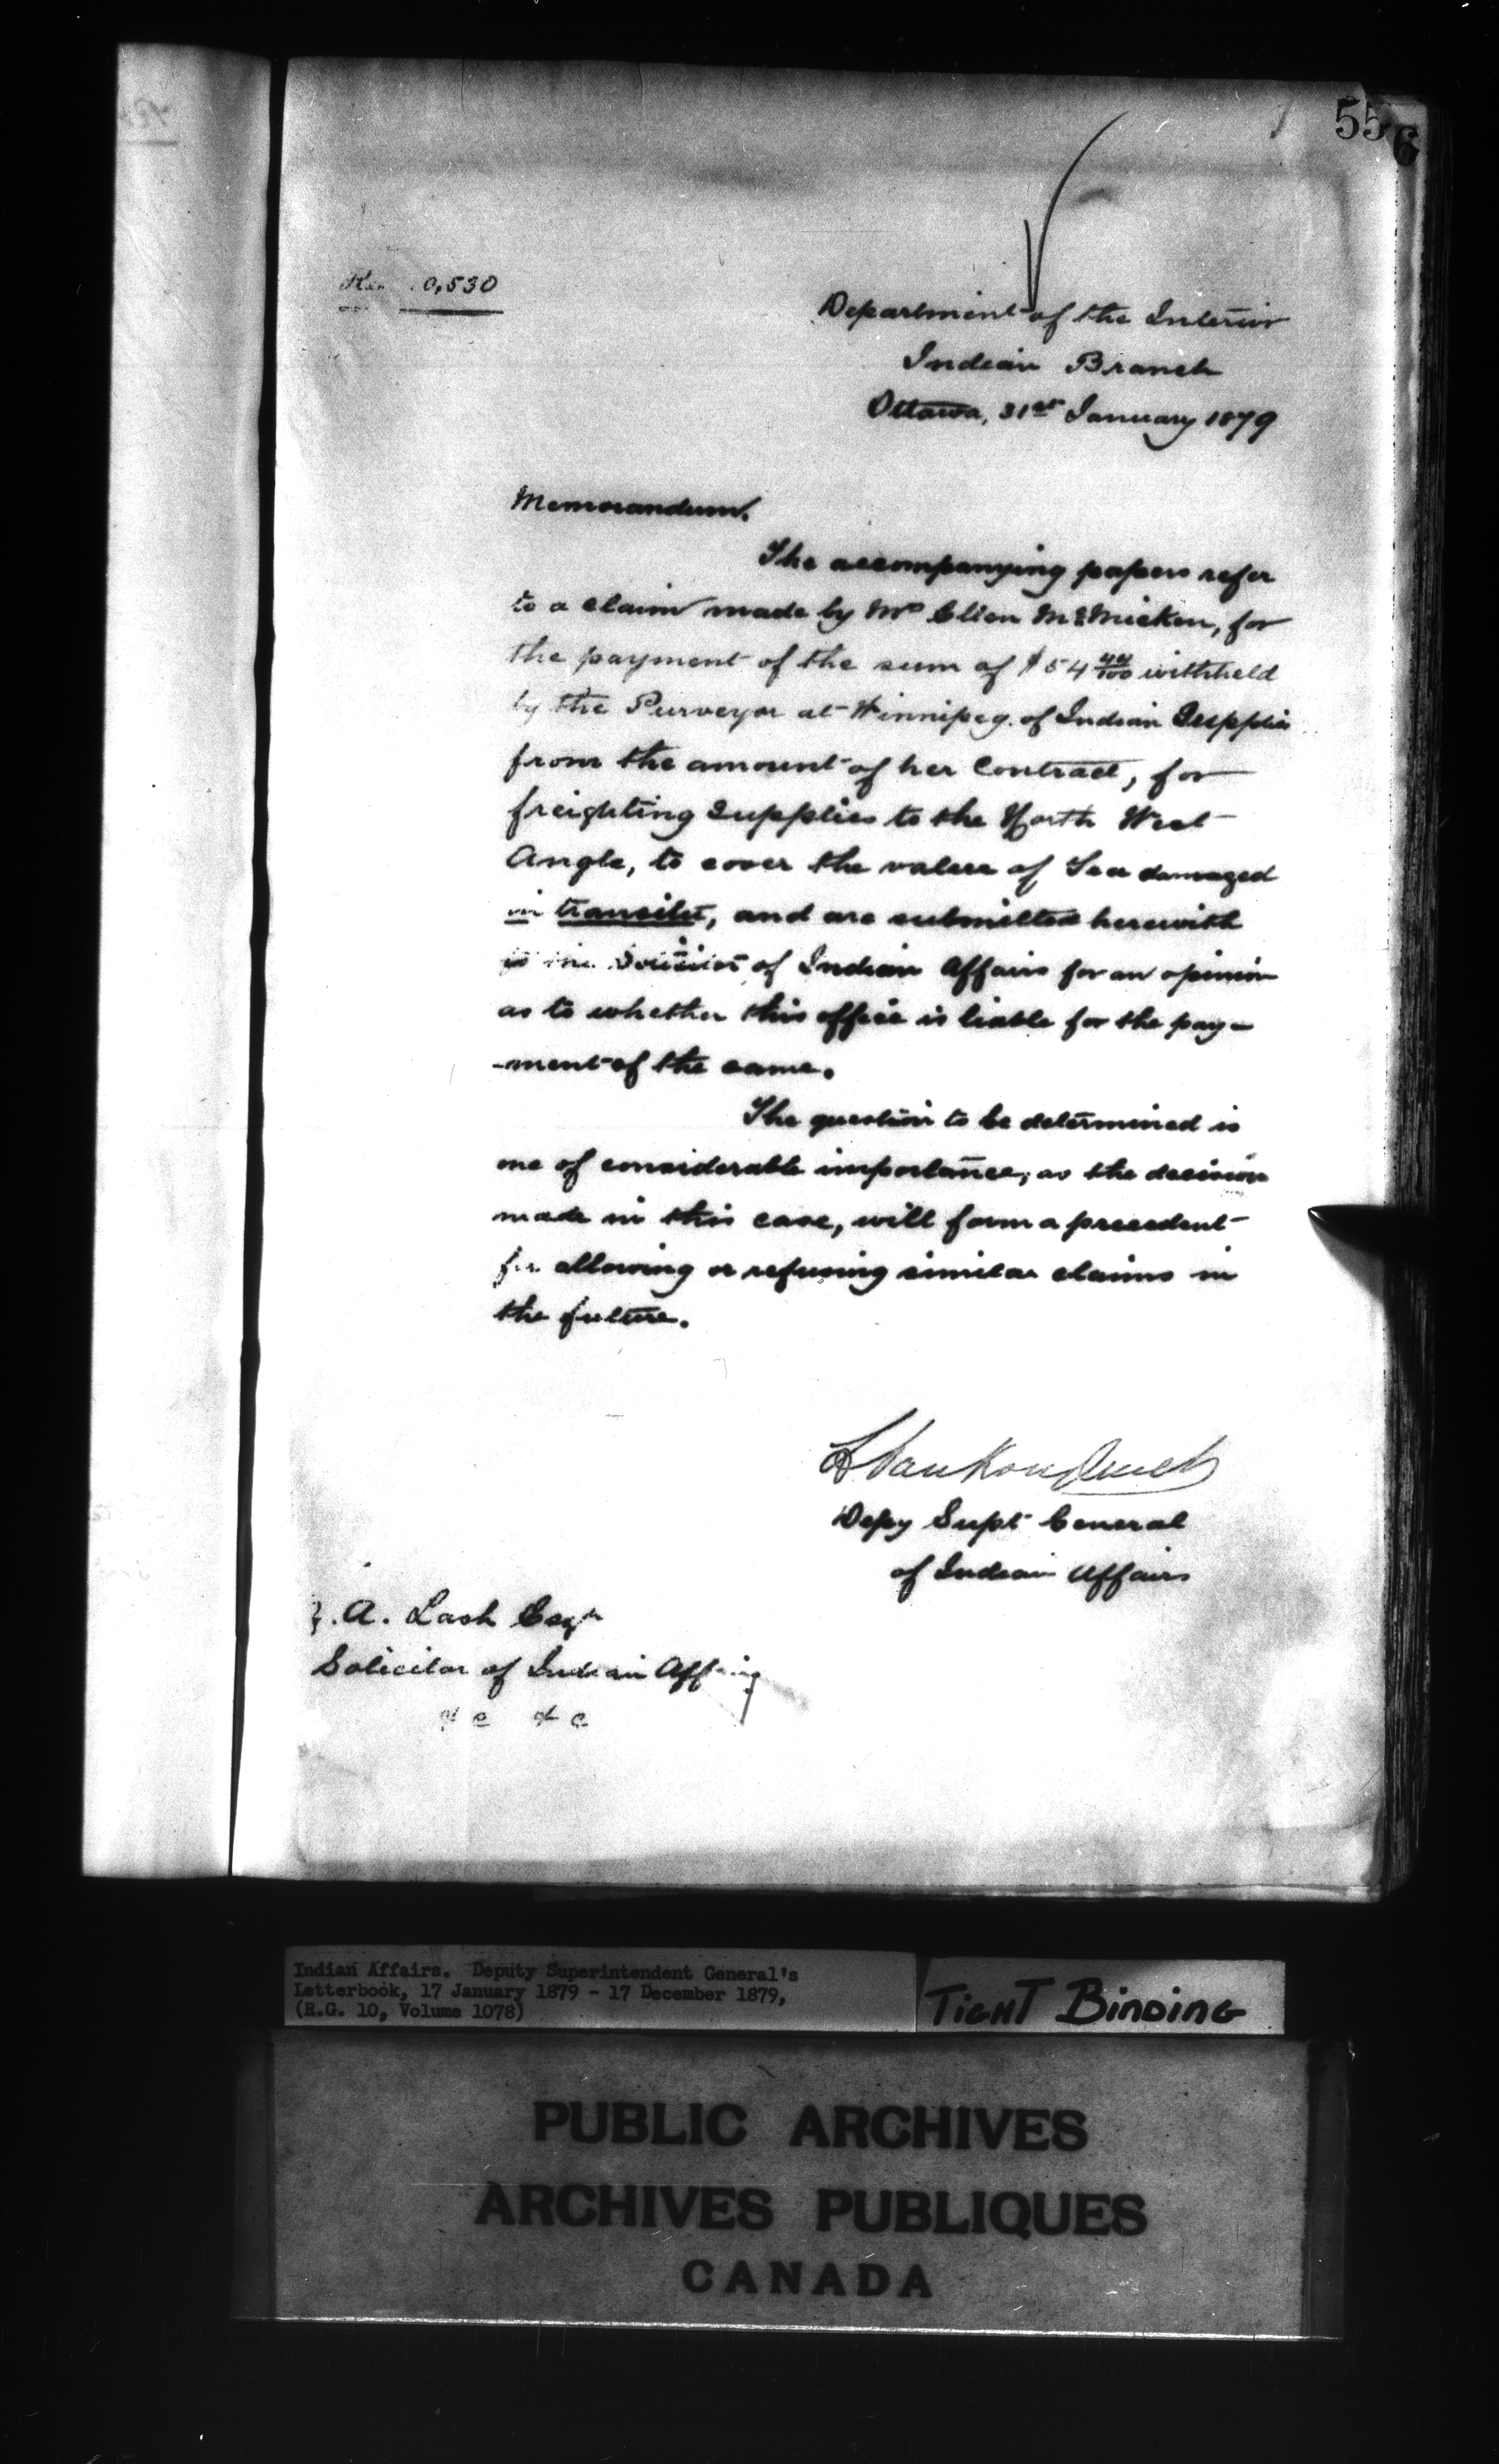 556
0,530
Department of the Interior
Indian Branch
Ottawa, 31st January 1879
Memorandum.
The accompanying papers refer
to a claim made by Mrs Ellen McMicken, for
the payment of the sum of $54 44/100 withheld
by the Purveyor at Winnipeg of Indian Supplies
from the amount of her Contract, for
freighting Supplies to the North West
Angle, to cover the value of Tea damaged
in transitu, and are submitted herewith
to the Solicitor of Indian Affairs for an opinion
as to whether this office is liable for the pay-
-ment of the same.
The question to be determined is
one of considerable importance, as the decision
made in this case, will form a precedent
for allowing or refusing similar claims in
the future.
L VanKoughnet
Depy Supt General
of Indian Affairs
A. Lash Esqr
Solicitor of Indian Affairs
&c &c
Indian Affairs. Deputy Superintendent General's
Letterbook, 17 January 1879 - 17 December 1879,
(R.G. 10, Volume 1078)
TIGHT BINDING
PUBLIC ARCHIVES
ARCHIVES PUBLIQUES
CANADA